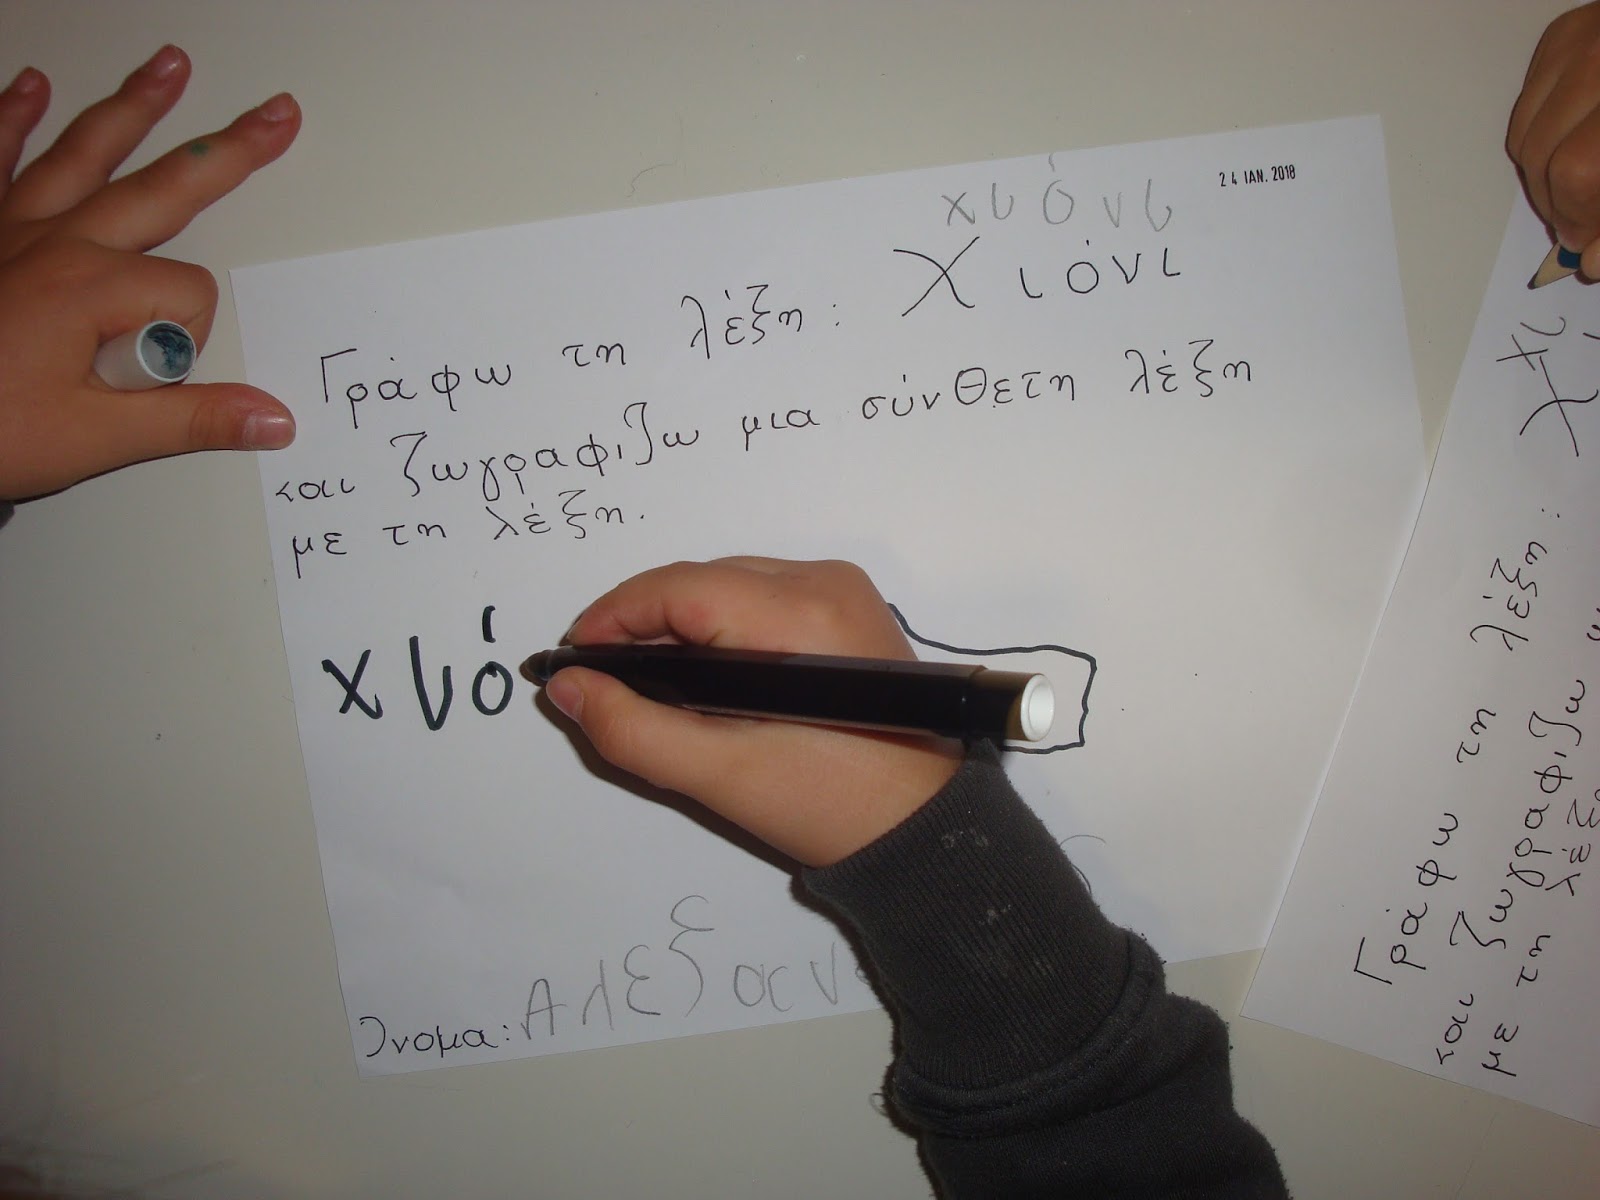 24 ΙΑΝ. 2018
χιόνι
Γράφω τη λέξη: Χιόνι
και ζωγραφίζω μια σύνθετη λέξη
με τη λέξη.
χιό
Όνομα: Αλεξαν
Γράφω τη λέξη:
και ζωγραφίζω
με τη λέξ